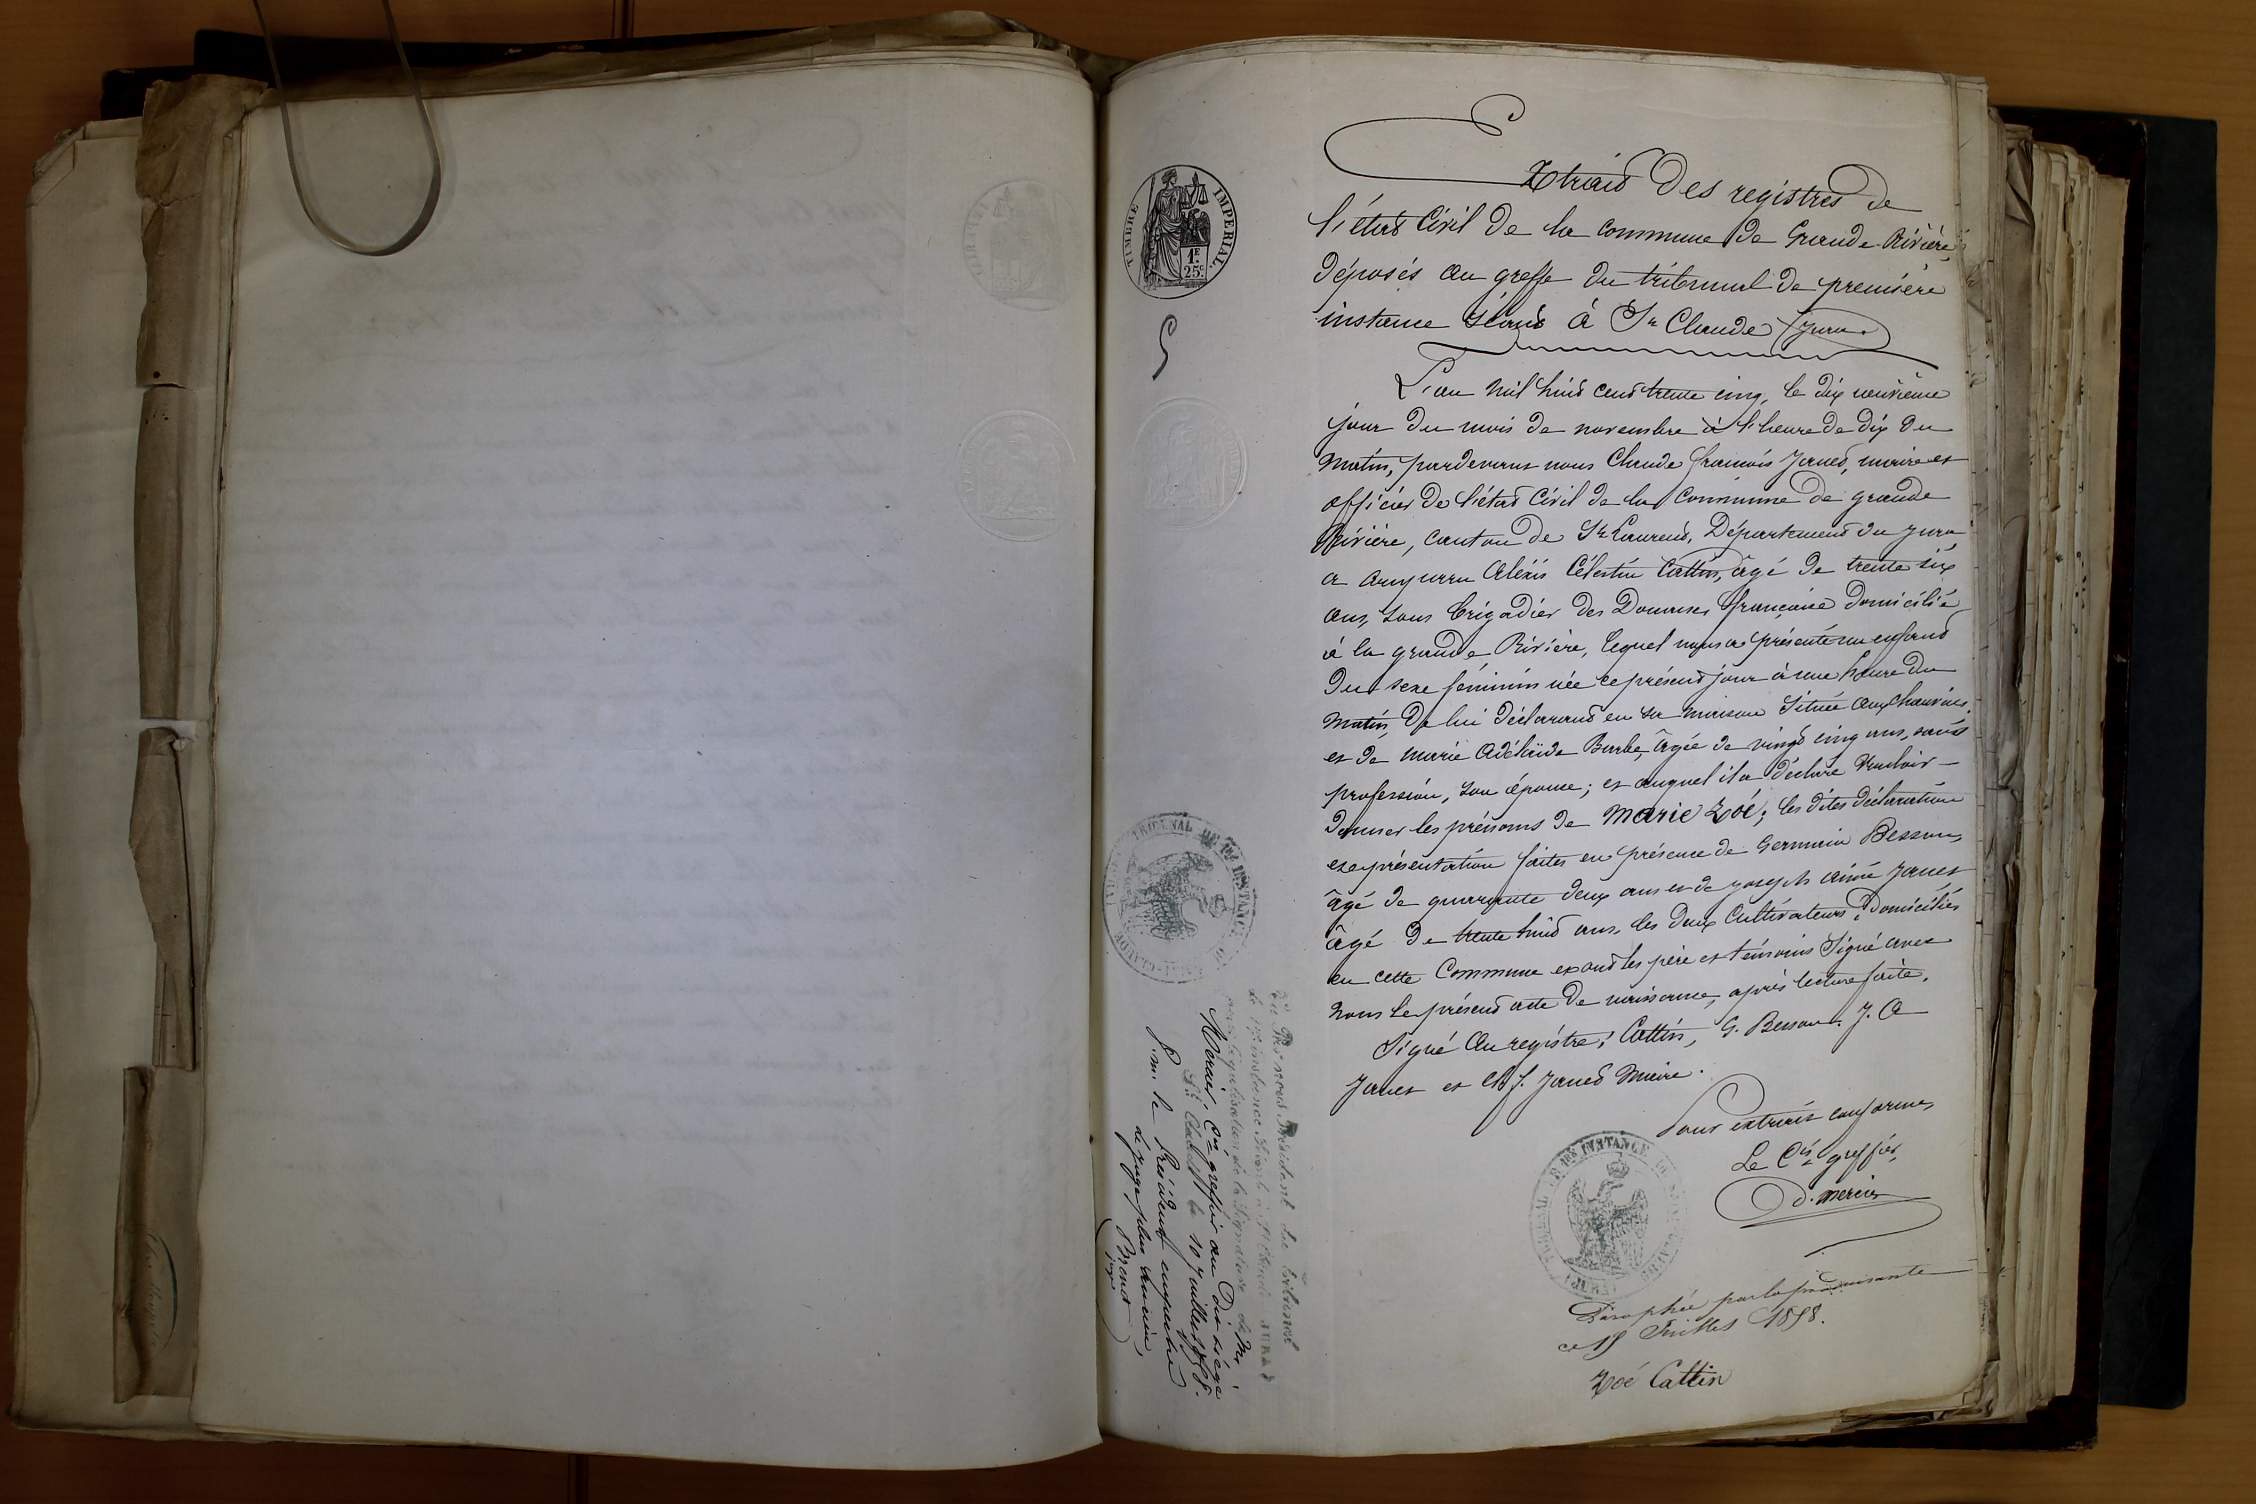 TIMBRE IMPERIAL.
1F.
25c
Extrait des registres de
l'état civil de la commune de Grande-Rivière,
déposés au greffe du tribunal de première
instance séant à St Claude (Jura.
L'an mil huit cent trente cinq, le dix neuvième
jour du mois de novembre à l'heure de dix du
matin, pardevant nous Claude françois Janet, maire et
officier de l'état civil de la commune de grande
Rivière, canton de St Laurent, Département du Jura
a comparu Alexis Célestin Cattin, âgé de trente six
ans, sous brigadier des Douanes françaises domicilié
à la grande Rivière, lequel nous a présenté un enfant
du sexe féminin née ce présent jour à une heure du
matin, de lui déclarant en sa maison située aux chauvins,
et de marie Adélaïde Barbe, âgée de vingt cinq ans, sans
profession, son épouse; et auquel il a déclaré vouloir
donner les prénoms de Marie Zoé; les dites déclaration
et présentation faites en présence de Germain Besson,
âgé de quarante deux ans et de joseph aimé Janet
âgé de trente huit ans, les deux cultivateurs, domiciliés
en cette Commune et ont les père et témoins signé avec
nous le présent acte de naissance, après lecture faite.
Signé au registre: Cattin, G. Besson. J. A
Janet et Cl. f. Janet Maire.
Pour extrait conforme,
Le Cis greffier,
D. Mercier
TRIBUNAL DE 1ère INSTANCE DE SAINT-CLAUDE
(JURA)
Paraphée par la
ce 15 Juillet 1858.
Zoé Cattin
TRIBUNAL DE 1ère INSTANCE
SAINT-CLAUDE
Vu par nous Président du tribunal
de 1ère instance séant à St Claude JURA
pour légalisation de la signature de Mr
Mercier, Cis greffier au dit siège
St Claude le 10 Juillet 1858.
Pour le Président empêché
le juge plus ancien,
juge